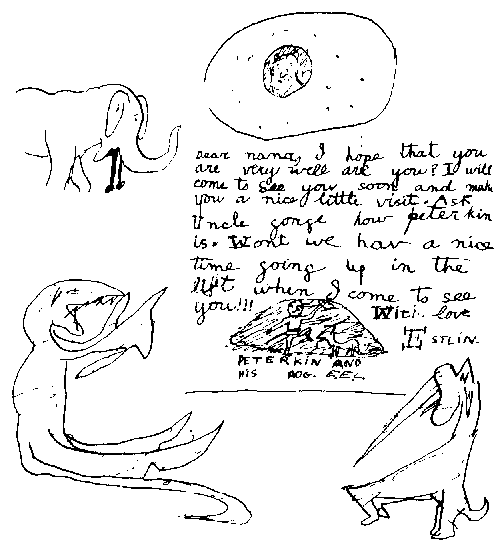 dear nana, I hope that you
are very well are you? I will
come to see you soon and mak
you a nice little visit. Ask
Uncle gorge how peterkin
is. Wont we hav a nice
time going up in the
lift when I come to see
you!!!
With love
Estlin.
PETERKIN AND
HIS DOG.